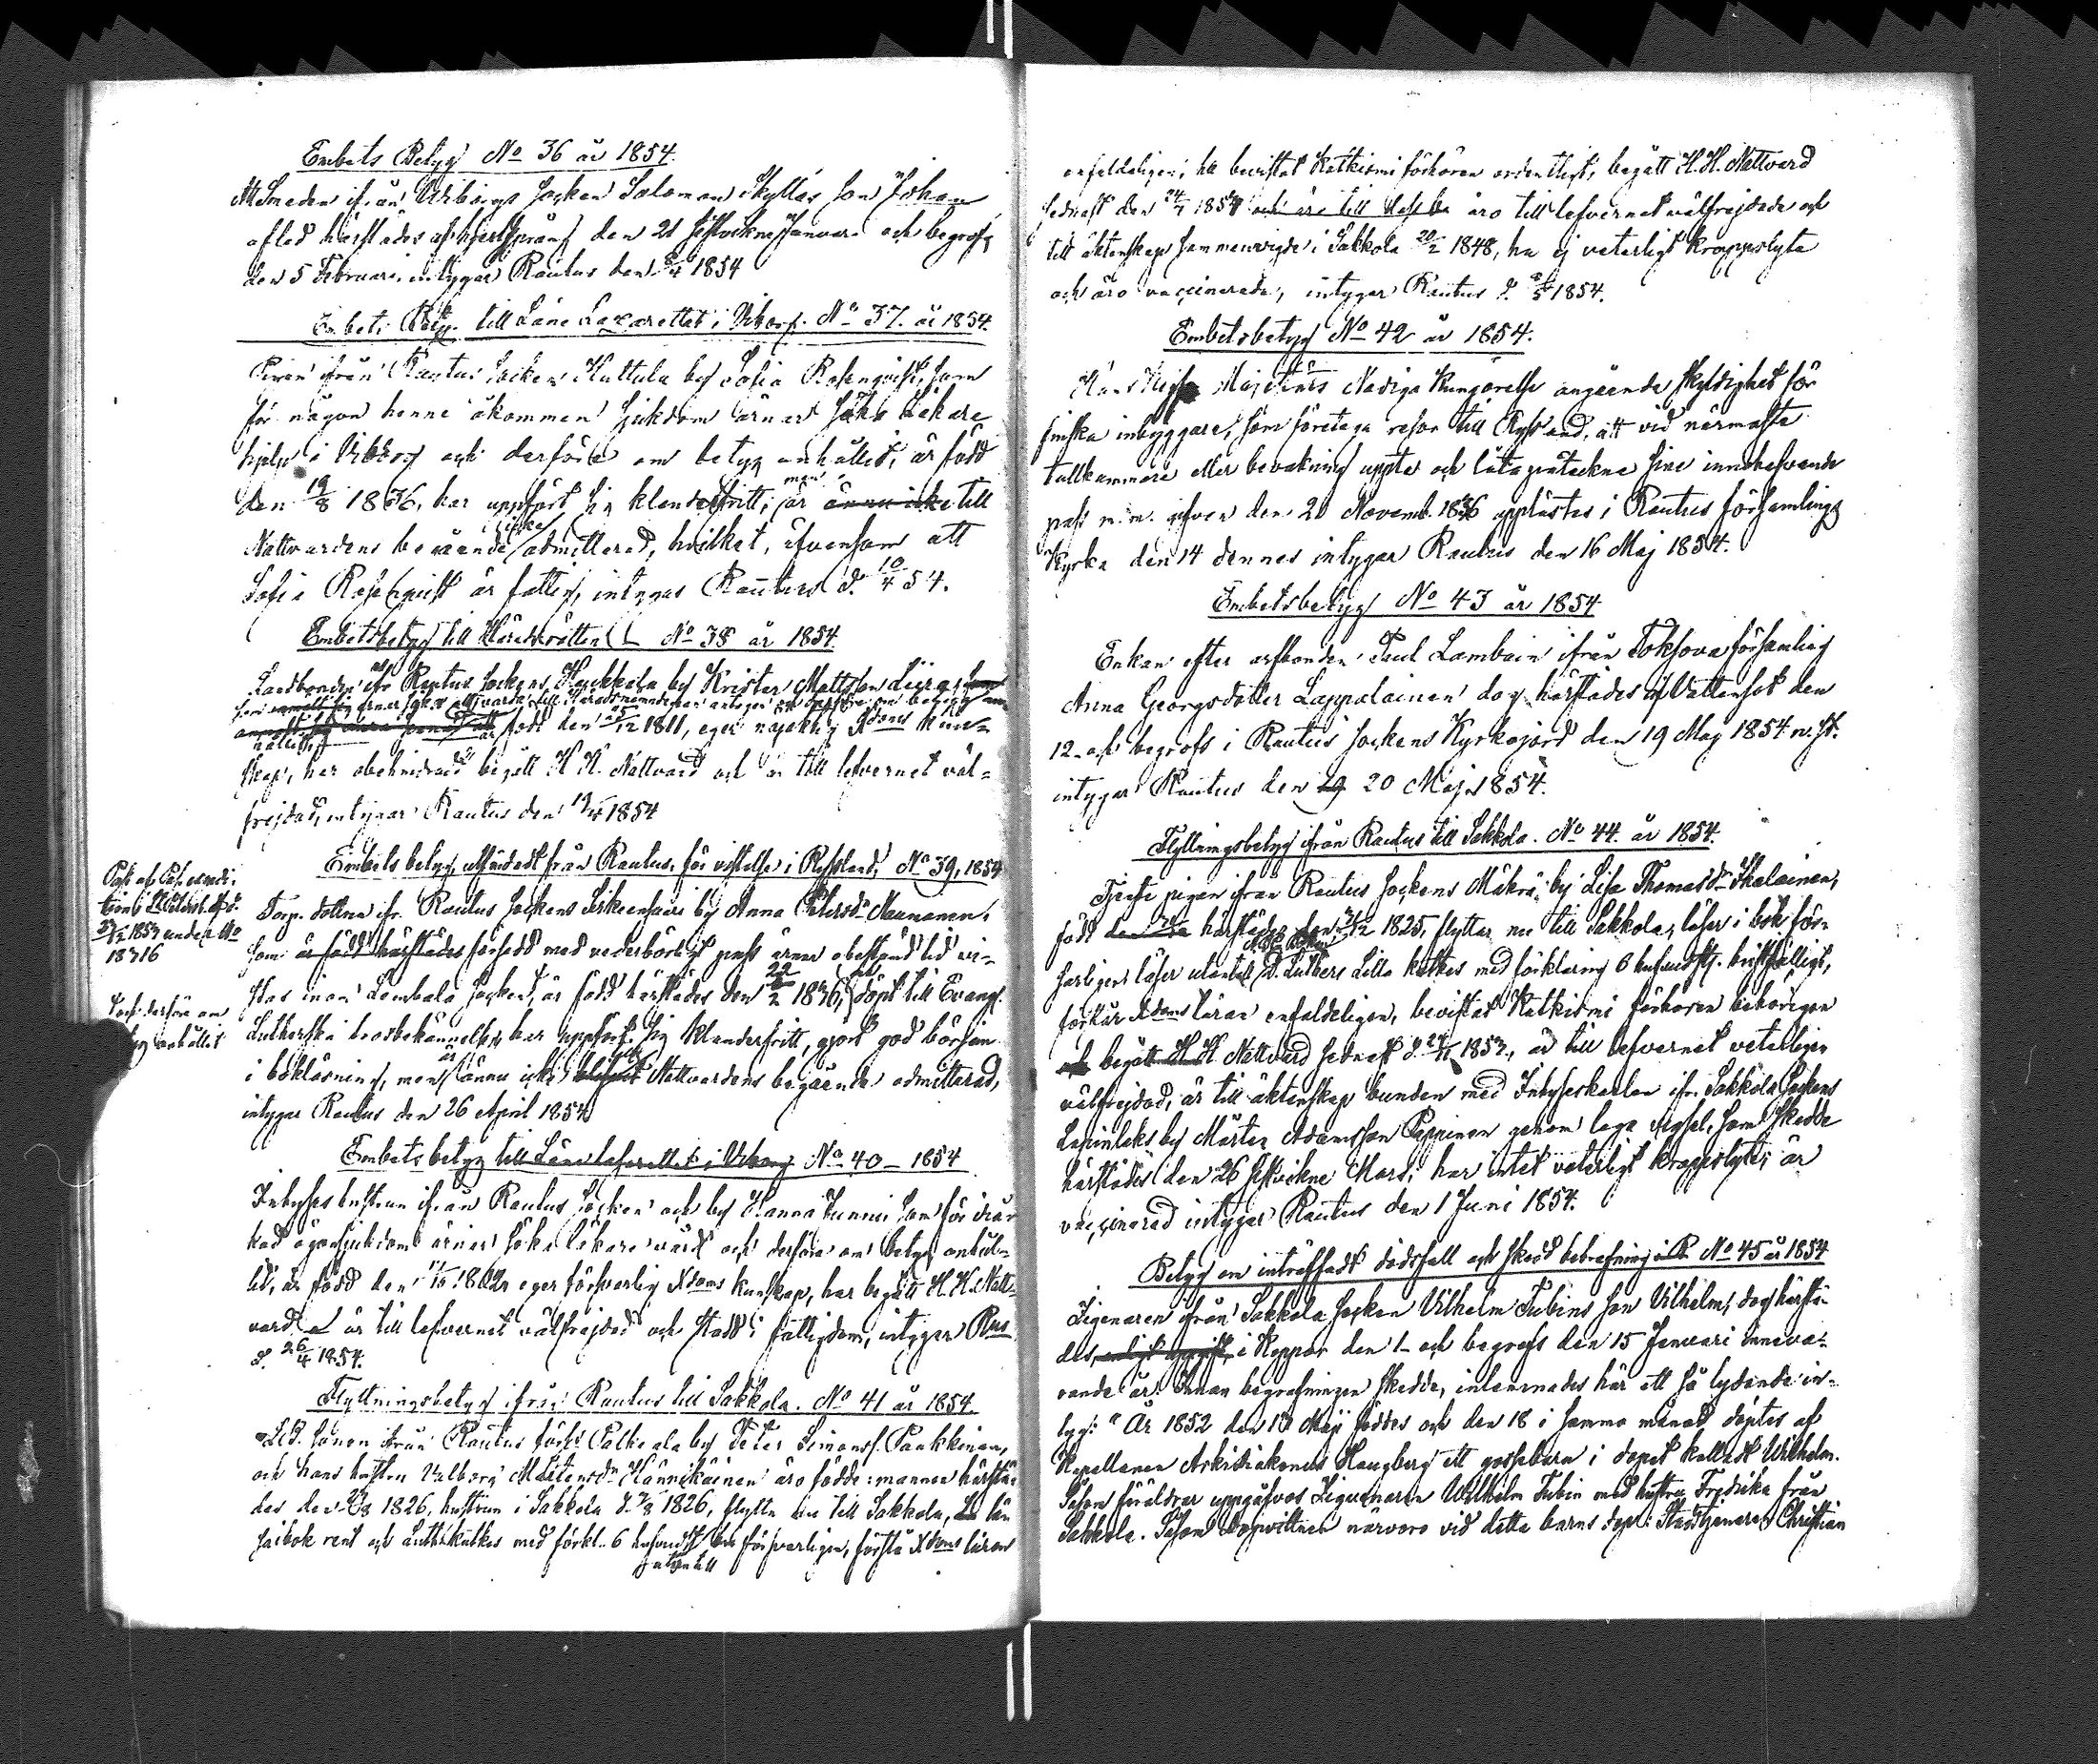 Embets Betyg No 36 år 1854.
Att Smeden ifrån Wiborgs Socken Salomon Skyttäs Son Johan
afled härstädes af den 21 sistvikne Januari och begrofs
den 5 Februari, intygar Rautus den 1854
Embets Betyg till Läns Lazarettet i Viborg. No 37. år 1854.
Pigan ifrån Rautus Socken Huttula by Sofia Rosenqvist, som
för någon henne åkommen sjukdom ärnar söka läkare
hjelp i Viborg och derföre om betyg anhållit, är född
den 19/8 1836, har uppfört sig klanderfritt, men är ännu icke till
Nattvardens begående icke admitterad, hvilket, äfvensom att
Sofia Rosenqvist är fattig, intygas Rautus d. 10/4 54.
Embetsbetyg till Häradsrätten No 38 år 1854.
Landbonden ifr Rautus Sockens Haukkala by Krister Mattsson Liira,
som ärnar söka
hållit, är född den 1811, eger nöjaktig Xdoms kun-
skap, har obehindrad begått H. H. Nattvard och är till lefvernet väl-
frejdad, intygar Rautus den 19/4 1854
Embets betyg, utfärdadt från Rautus, för vistelse i Ryssland, No 39, 1854
Pass af Pass expedi-
tion i
1853 under No
18316
Torp. dottren ifr. Rautus Sockens Sirkiensaari by Anna Petersdr Naumanen,
som är född härstädes försedd med vederbörligt pass ärnar obestämd tid vi-
stas inom Lembala Socken, är född härstädes den 1836, och döpt till Evang.
och derföre om
betyg anhållit
Lutherska trosbekännelsen, har uppfört sig klanderfritt, gjort god början
i bokläsning, men är ännu icke till Nattvardens begående admitterad,
intygar Rautus den 26 April 1854.
Embets betyg till Läns lasarettet i Viborg No 40 - 1854
Inhyses hustrun ifrån Rautus Socken och by Hanna Junni som för
kad ögonsjukdom ärnar söka läkare vård och derföre om betyg anhål-
lit, är född den 1802, eger försvarlig Xdoms kunskap, har begått H. H. Natt-
vard är till lefvernet välfrejdad och stadd i fattigdom, intygar Rus
d. 26/4 1854.
Flyttningsbetyg ifrån Rautus till Sakkola. No 41 år 1854.
L.B. sonen ifrån Rautus Sock. Palkeala by Peter Simonss. Paukkinen,
och hans hustru Valborg Mårtensdr Hännikäinen äro födde: mannen härstä-
des den 1826, hustrun i Sakkola d. 1826, flytta nu till Sakkola, lä-
sa i bok rent och Luth. katkes med förkl. 6 hufvudst. utantill försvarligen, förstå Xdoms läran
enfaldeligen; ha bevistat Katkismi förhören ordentligt, begått H. H. Nattvard
sednast den 24/4 1854 och äro till äro till lefvernet välfrejdade och
till äktenskap sammanvigde i Sakkola 20/2 1848, ha ej veterligt kroppslyte
och äro vaccinerade, intygar Rautus d. 1854.
Embetsbetyg No 42 år 1854.
Hans Kejs. Majestäts Nådiga Kungörelse angående skyldighet för
finska inbyggare, som företaga resor till Ryssland, att vid närmaste
tullkammare eller bevakning uppte och låta påteckna sine innehafvande
pass m.m. gifven den 20 Novemb. 1846 upplästes i Rautus församlings
Kyrka den 14 dennes intygar Rautus den 16 Maj 1854.
Embetsbetyg No 43 år 1854
Enkan efter arfbonden Paul Lambain ifrån Toksova församling
Anna Georgsdotter Lappalainen dog härstädes af Vattensot den
12 och begrofs i Rautus Sockens Kyrkojord den 19 Maj 1854 n. st.
intygar Rautus den 19 20 Maj 1854.
Flyttningsbetyg ifrån Rautus till Sakkola. No 44. år 1854.
Tjenste pigan ifrån Rautus Sockens Mäkrä by Lisa Thomasdr Ihalainen,
född härstädes den 1825, flyttar nu till Sakkola, läser i bok för-
svarligen, läser utantill D. Luthers Lilla katkes med förklaring 6 hufvudst. bristfälligt,
förstår Xdoms läran enfaldeligen, bevistat Katkismi förhören behörigen
och begått H. H. Nattvard sednast d. 1853, är till lefvernet veterligen
välfrejdad, är till äktenskap bunden med Inhyseskarlen ifr. Sakkola Sockens
Lapinlaks by Mårten Adamsson Pappinen genom laga vigsel, som skedde
härstädes den 26 sistvikne Mars, har intet veterligt kroppslyte, är
vaccinerad intygar Rautus den 1 Juni 1854.
Betyg om inträffadt dödsfall och skedd begrafning i R. No 45 år 1854
Zigenaren ifrån Sakkola Socken Vilhelm Tubins son Vilhelm, dog härstä-
des, enligt uppgift, i Koppor den 1 och begrofs den 15 Januari inneva-
rande år. Innan begrafningen skedde, inlemnades här ett så lydande in-
tyg: "År 1852 den 13 Maji föddes och den 18 i samma månad döptes af
Kapellanen Arkidiakonus Haugberg ett gossebarn i dopet kalladt Wilhelm.
Såsom föräldrar uppgåfvos Zigenaren Wilhelm Tubin med hustru Fredrika från
Sakkola. Såsom Dopvittnen närvoro vid detta barns dop: Stadstjenaren Christian